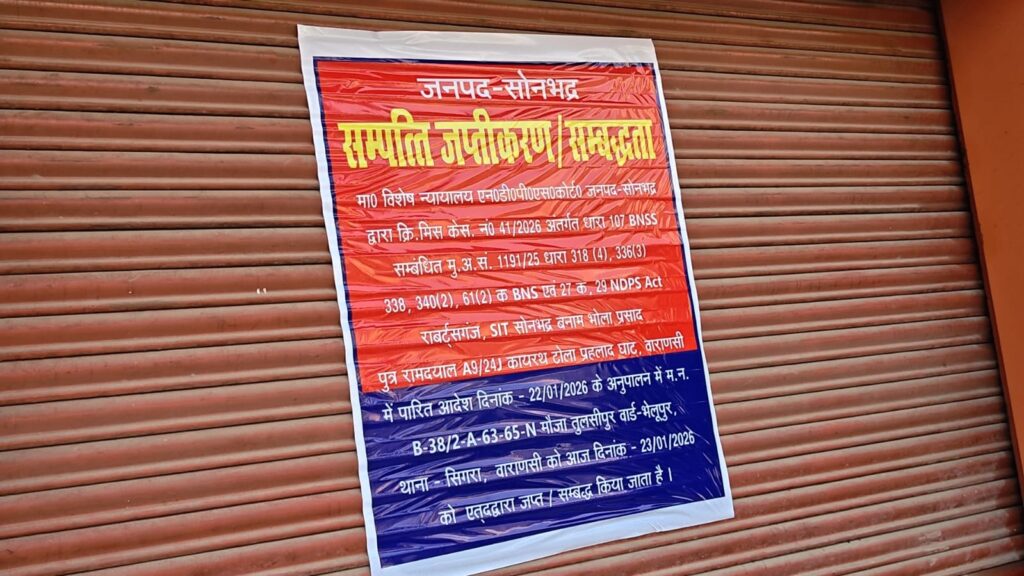 जनपद-सोनभद्र
सम्पत्ति जप्तीकरण / सम्बद्धता
मा0 विशेष न्यायालय एन0डी0पी0एस0कोर्ट0 जनपद-सोनभद्र
द्वारा क्रि.मिस केस. नं0 41/2026 अंतर्गत धारा 107 BNSS
सम्बंधित मु.अ.सं. 1191/25 धारा 318 (4), 336(3)
338, 340(2), 61(2) क BNS एवं 27 क, 29 NDPS Act
राबर्ट्सगंज, SIT सोनभद्र बनाम भोला प्रसाद
पुत्र रामदयाल A9/24J कायस्थ टोला प्रहलाद घाट, वाराणसी
में पारित आदेश दिनांक - 22/01/2026 के अनुपालन में म.न.
B-38/2-A-63-65-N मौजा तुलसीपुर वार्ड-भेलूपुर,
थाना - सिगरा, वाराणसी को आज दिनांक - 23/01/2026
को एतद्द्वारा जप्त / सम्बद्ध किया जाता है।